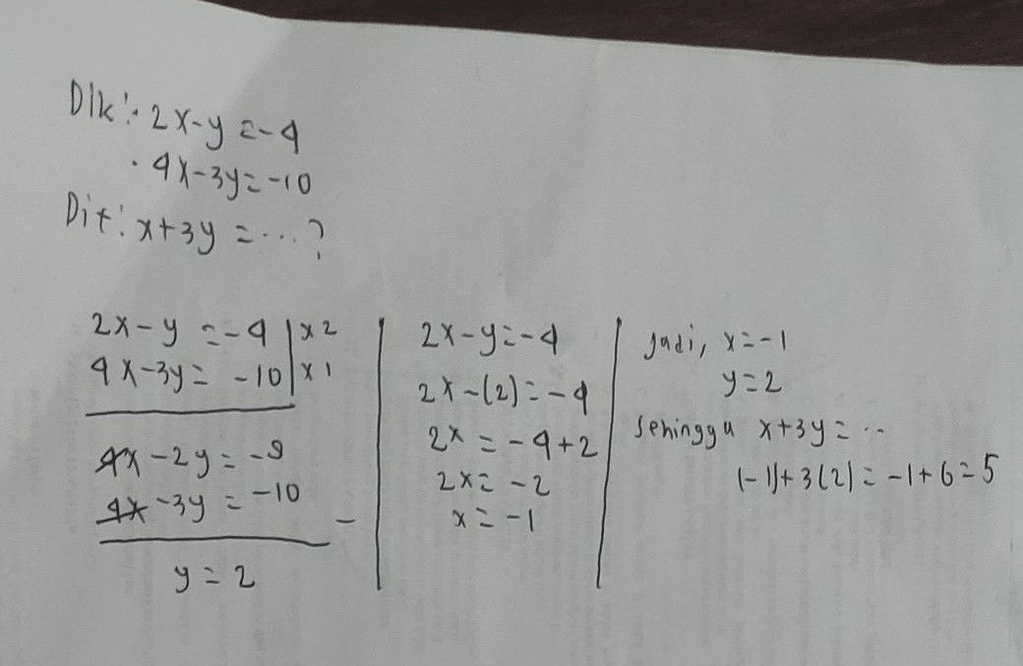 Dik : • 2x-y = -4
• 4x-3y = -10
Dit : x+3y = ... ?
2x-y = -4 | x2
4x-3y = -10 | x1
4x-2y = -8
4x-3y = -10
-
y = 2
2x-y = -4
2x-(2) = -4
2x = -4+2
2x = -2
x = -1
Jadi, x = -1
y = 2
sehingga x+3y = ..
(-1)+3(2) = -1+6 = 5